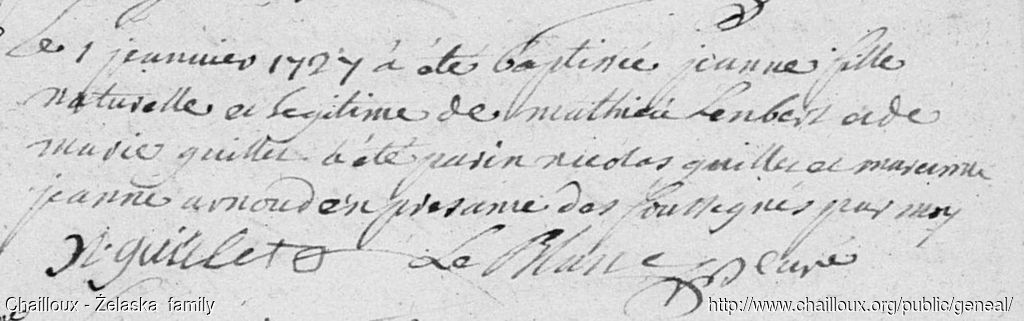 Le 1 jeanvier 1727 à été baptisée jeanne fille
naturelle et legitime de mathieu Lenbert et de
marie guillet à été parin nicolas guillet et mareinne
jeanne arnoud en presance des soussignés par moy
N. guillet Le Blanc curé
Chailloux - Želaska family
http://www.chailloux.org/public/geneal/